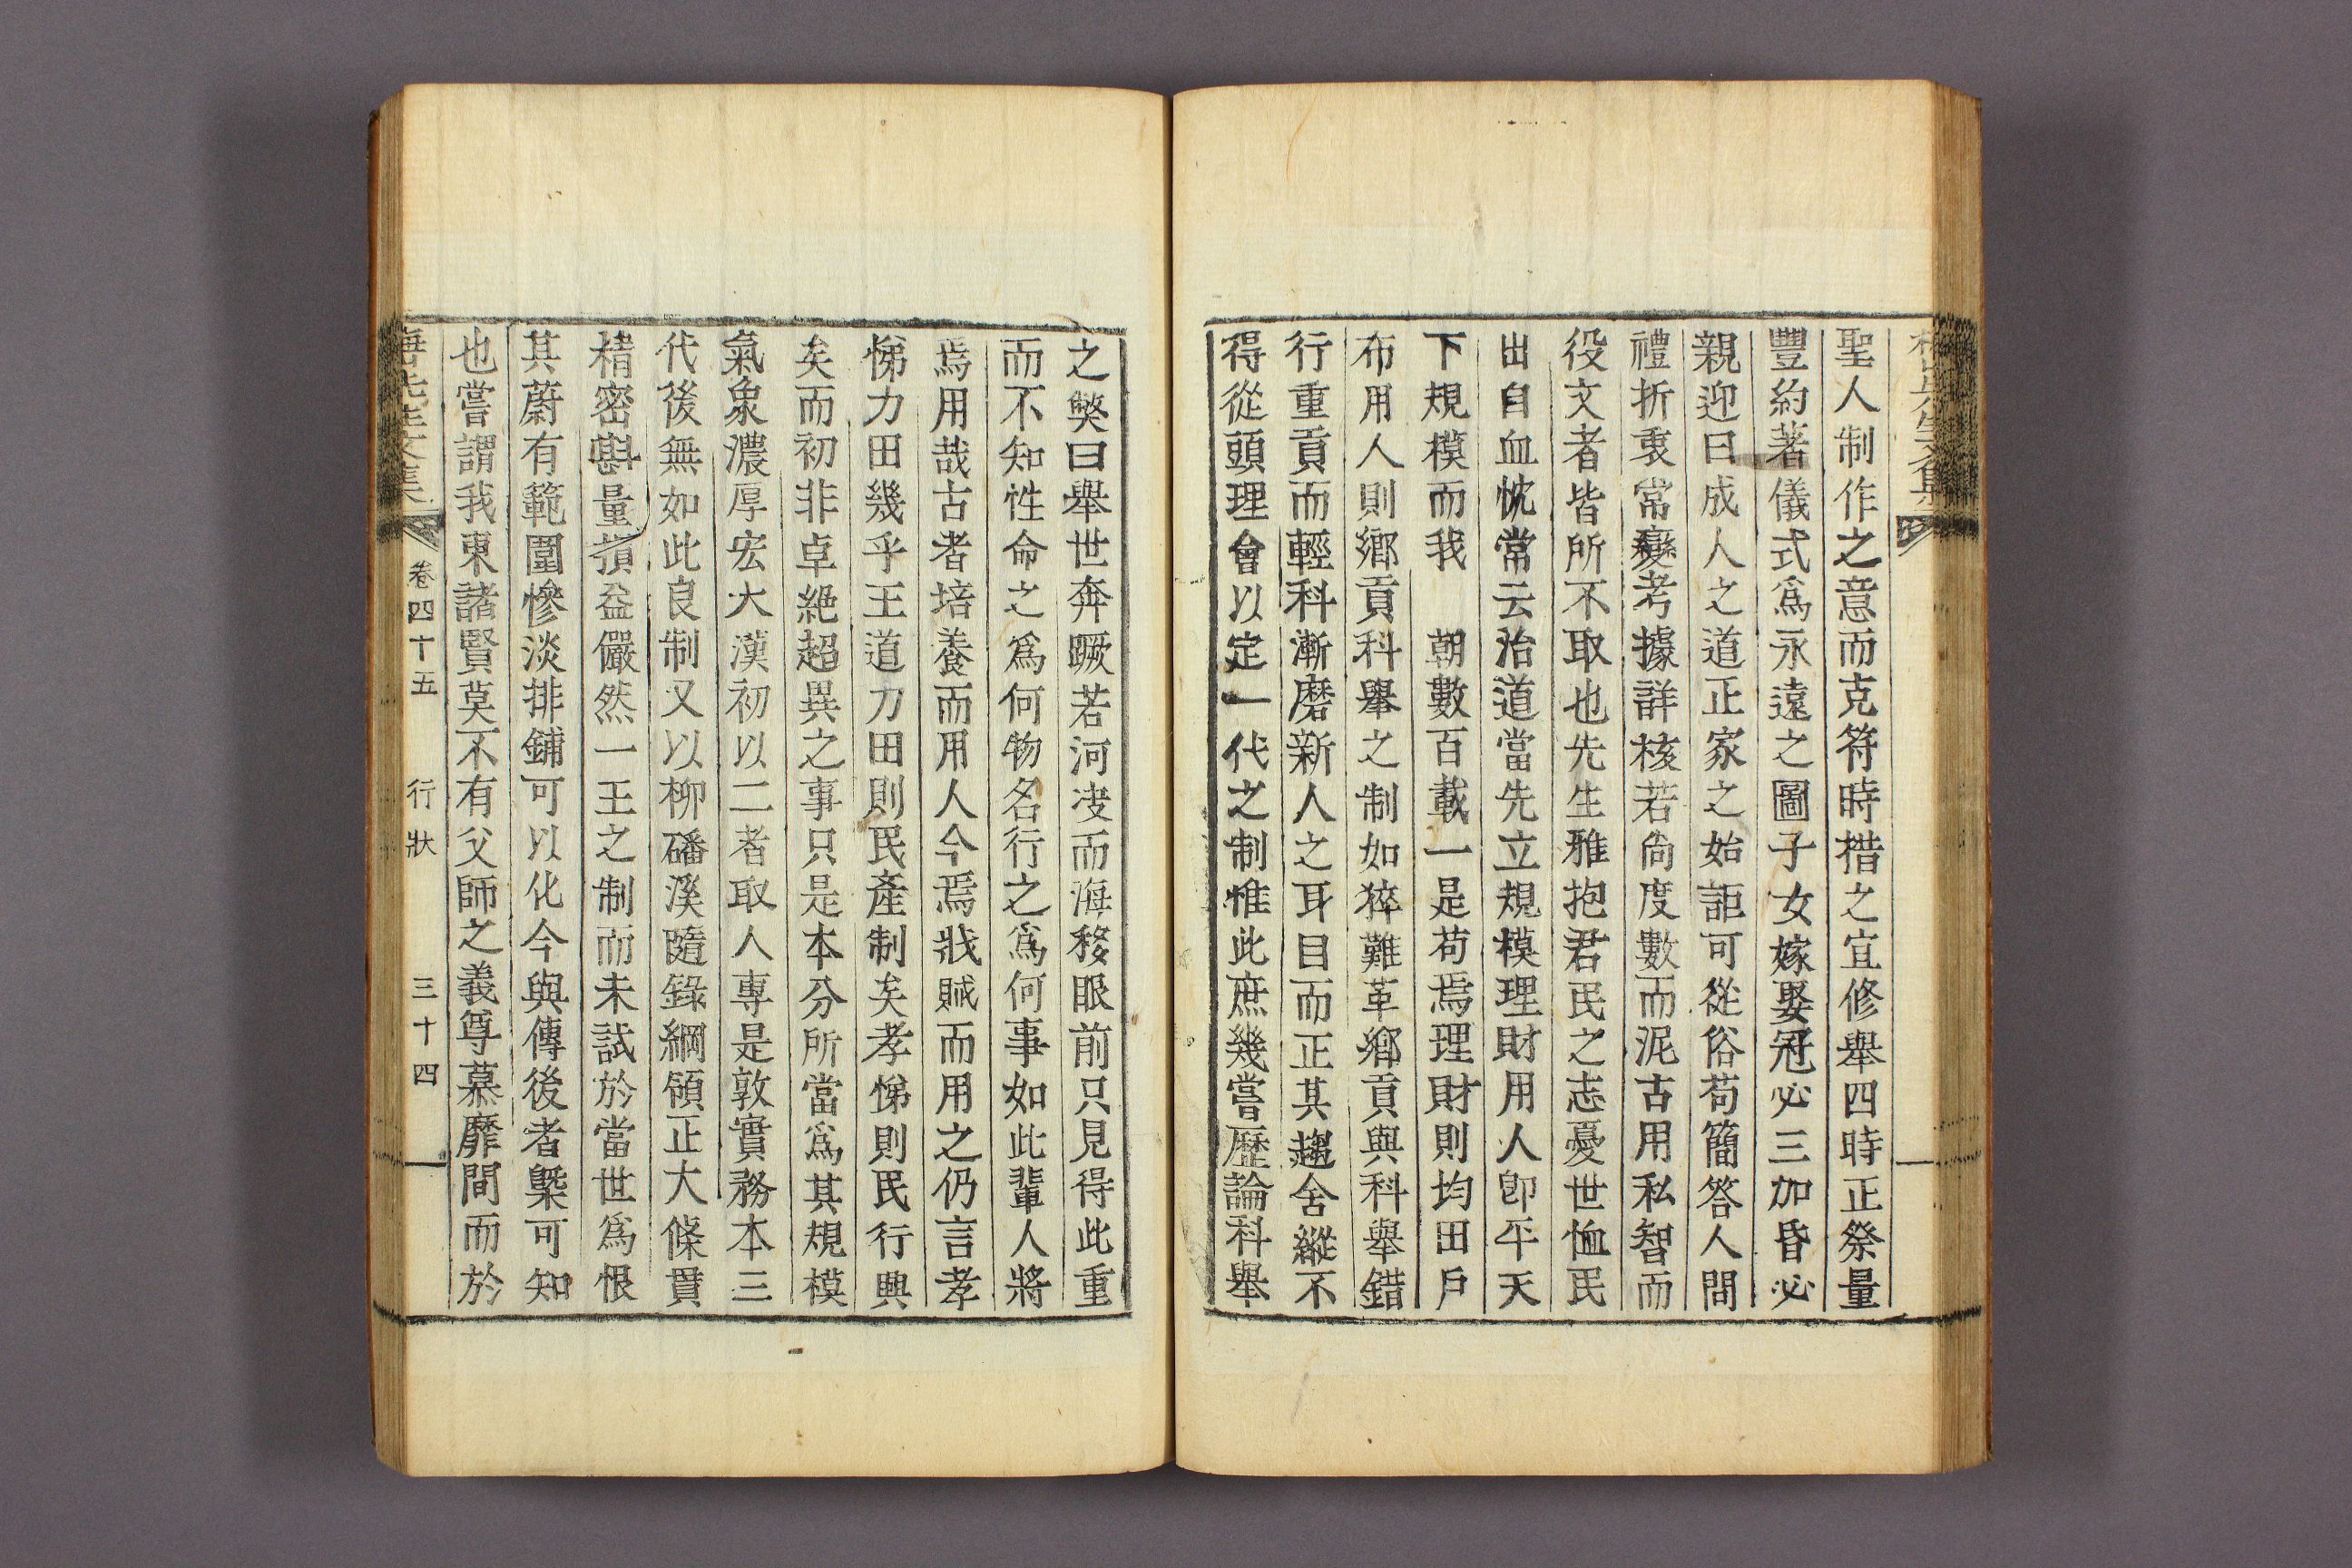 聖人制作之意而克符時措之宜修舉四時正祭量
豐約著儀式爲永遠之圖子女嫁娶冠必三加昏必
親迎曰成人之道正家之始詎可從俗苟簡答人問
禮折衷常變考據詳核若尙度數而泥古用私智而
役文者皆所不取也先生雅抱君民之志憂世恤民
出自血忱常云治道當先立規模理財用人卽平天
下規模而我 朝數百載一是苟焉理財則均田戶
布用人則鄉貢科舉之制如猝難革鄉貢與科舉錯
行重貢而輕科漸磨新人之耳目而正其趨舍縱不
得從頭理會以定一代之制惟此庶幾嘗歷論科舉
之獘曰舉世奔蹶若河决而海移眼前只見得此重
而不知性命之爲何物名行之爲何事如此輩人將
焉用哉古者培養而用人今焉戕賊而用之仍言孝
悌力田幾乎王道力田則民產制矣孝悌則民行興
矣而初非卓絶超異之事只是本分所當爲其規模
氣象濃厚宏大漢初以二者取人專是敦實務本三
代後無如此良制又以柳磻溪隨錄綱領正大條貫
精密斟量損益儼然一王之制而未試於當世爲恨
其蔚有範圍慘淡排鋪可以化今與傳後者槩可知
也嘗謂我東諸賢莫不有父師之義尊慕靡間而於
先生文集 卷四十五 行狀 三十四